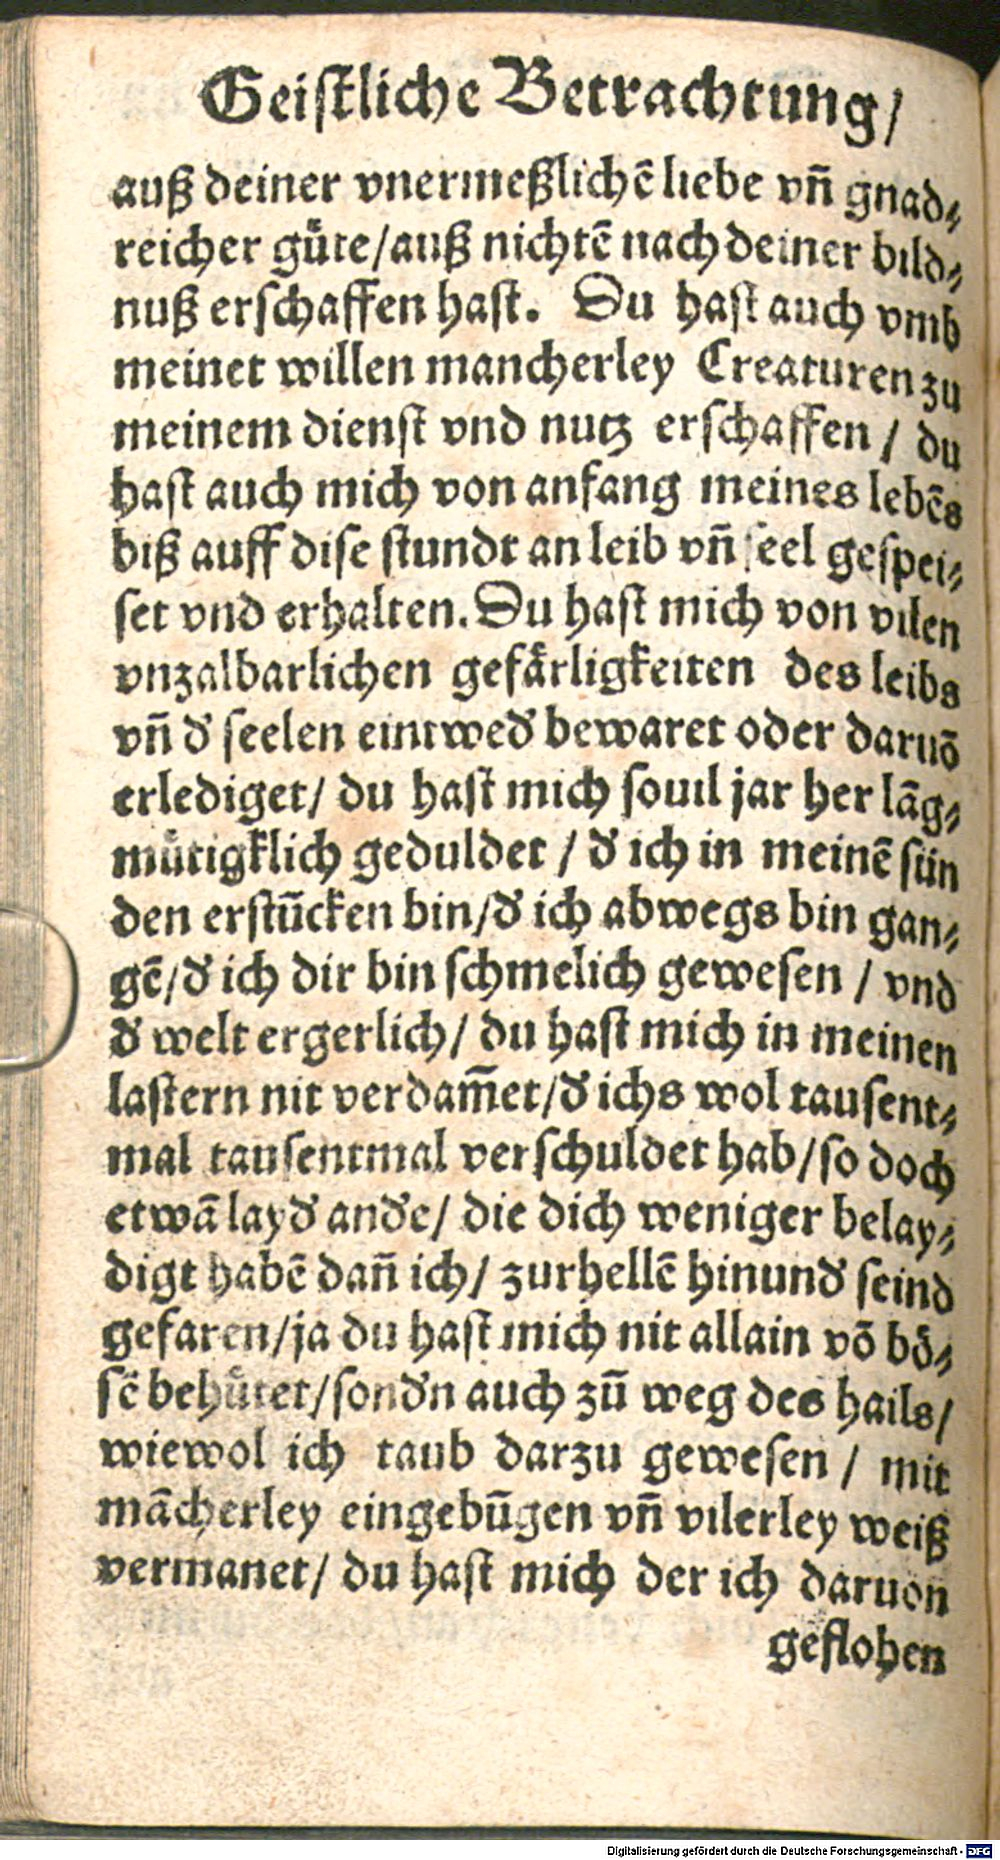 Geistliche Betrachtung/
auß deiner vnermeßlichẽ liebe vñ gnad⸗
reicher guͤte/auß nichtẽ nach deiner bild⸗
nuß erschaffen hast. Du hast auch vmb
meinet willen mancherley Creaturen zu
meinem dienst vnd nutz erschaffen / du
hast auch mich von anfang meines lebẽs
biß auff dise stundt an leib vñ seel gespei⸗
set vnd erhalten. Du hast mich von vilen
vnzalbarlichen gefaͤrligkeiten des leibs
vñ ď seelen eintweď bewaret oder daruõ
erlediget/ du hast mich souil jar her lãg⸗
muͤtigklich geduldet / ď ich in meinẽ sün
den erstũcken bin/ď ich abwegs bin gan⸗
gẽ/ď ich dir bin schmelich gewesen / vnd
ď welt ergerlich/ du hast mich in meinen
lastern nit verdam̃et/ď ichs wol tausent⸗
mal tausentmal verschuldet hab/so doch
etwã layď anďe/ die dich weniger belay⸗
digt habẽ dañ ich/ zurhellẽ hinunď seind
gefaren/ja du hast mich nit allain võ boͤ⸗
sẽ behuͤtet/sonďn auch zũ weg des hails/
wiewol ich taub darzu gewesen / mit
mãcherley eingebũgen vñ vilerley weiß
vermanet/ du hast mich der ich daruon
geflohen
Digitalisierung gefördert durch die Deutsche Forschungsgemeinschaft - DFG